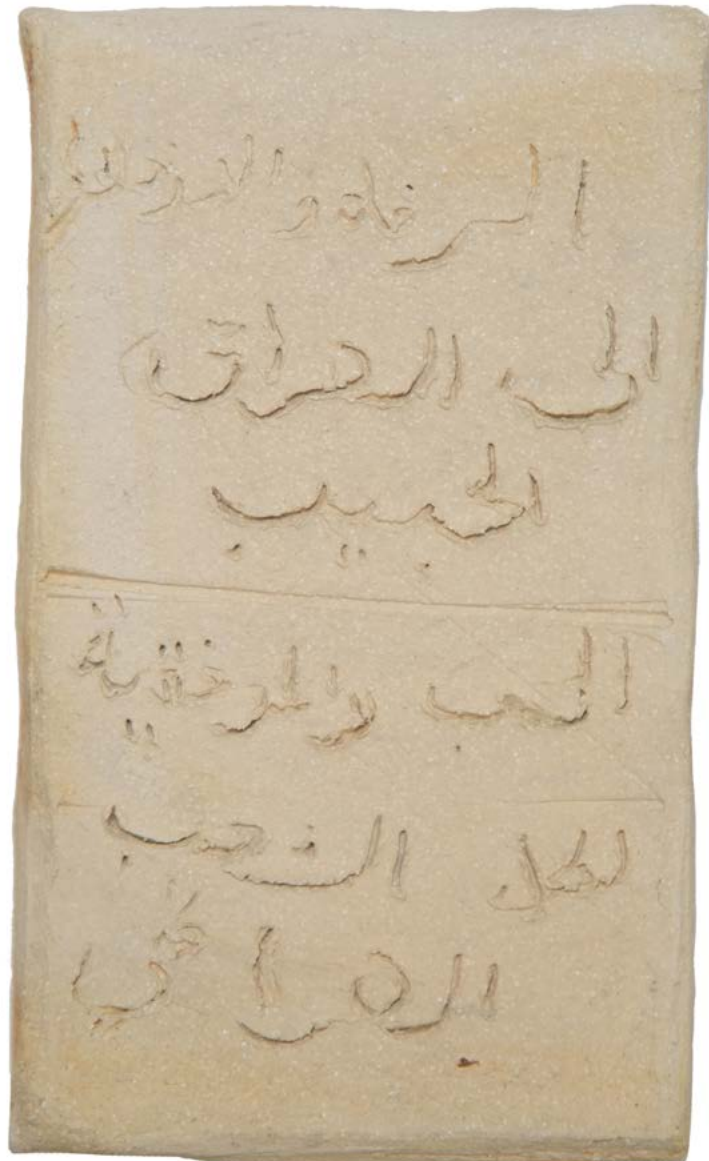 الرفاه والازدهار
الى العراق
الحبيب
الحب والموفقية
لكل الشعب
العراقي